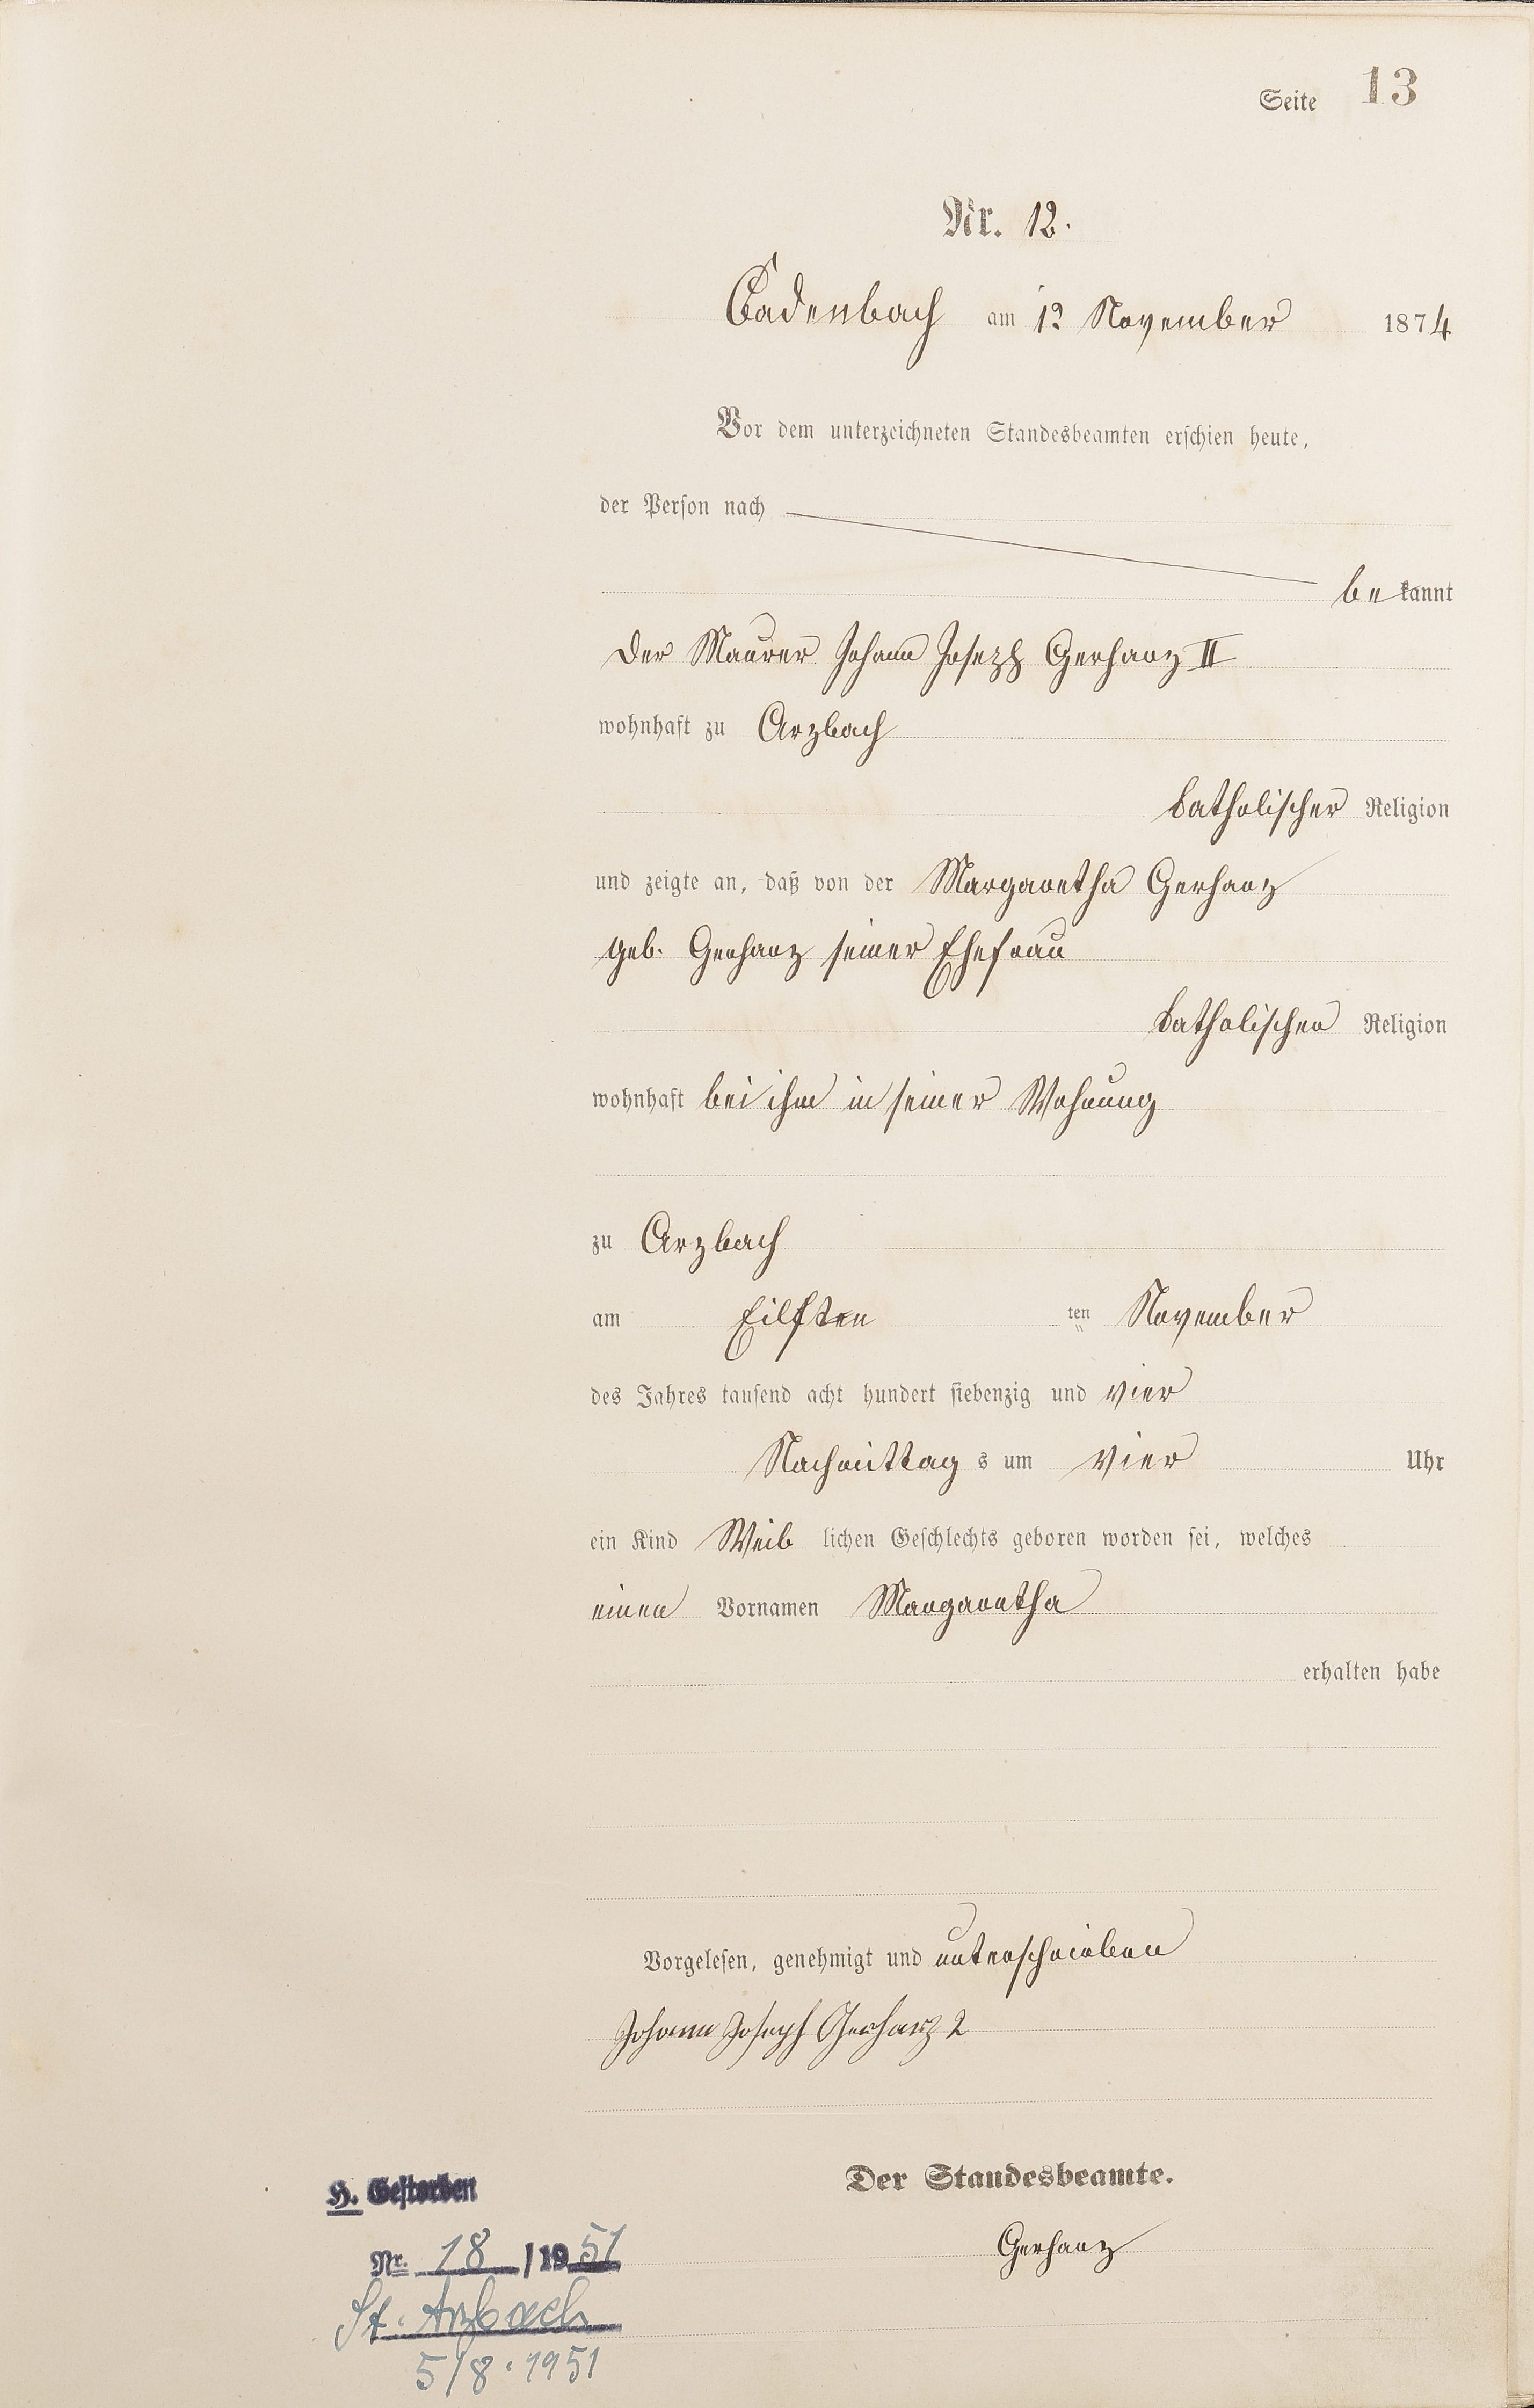 Seite 13
Nr. 12.
Cadenbach am 12 November 1874
Vor dem unterzeichneten Standesbeamten erschien heute,
der Person nach
bekannt
der Maurer Johann Joseph Gerharz II
wohnhaft zu Arzbach
katholischer Religion
und zeigte an, daß von der Margaretha Gerharz
geb. Gerharz seiner Ehefrau
katholischer Religion
wohnhaft bei ihm in seiner Wohnung
zu Arzbach
am Eilften ten November
des Jahres tausend acht hundert siebenzig und vier
Nachmittag s um vier Uhr
ein Kind Weib lichen Geschlechts geboren worden sei, welches
einen Vornamen Margaretha
erhalten habe
Vorgelesen, genehmigt und unterschrieben
Johann Joseph Gerharz 2
Der Standesbeamte.
Gerharz
H. Gestorben
Nr. 18 /1951
St. Arzbach
5/8.1951